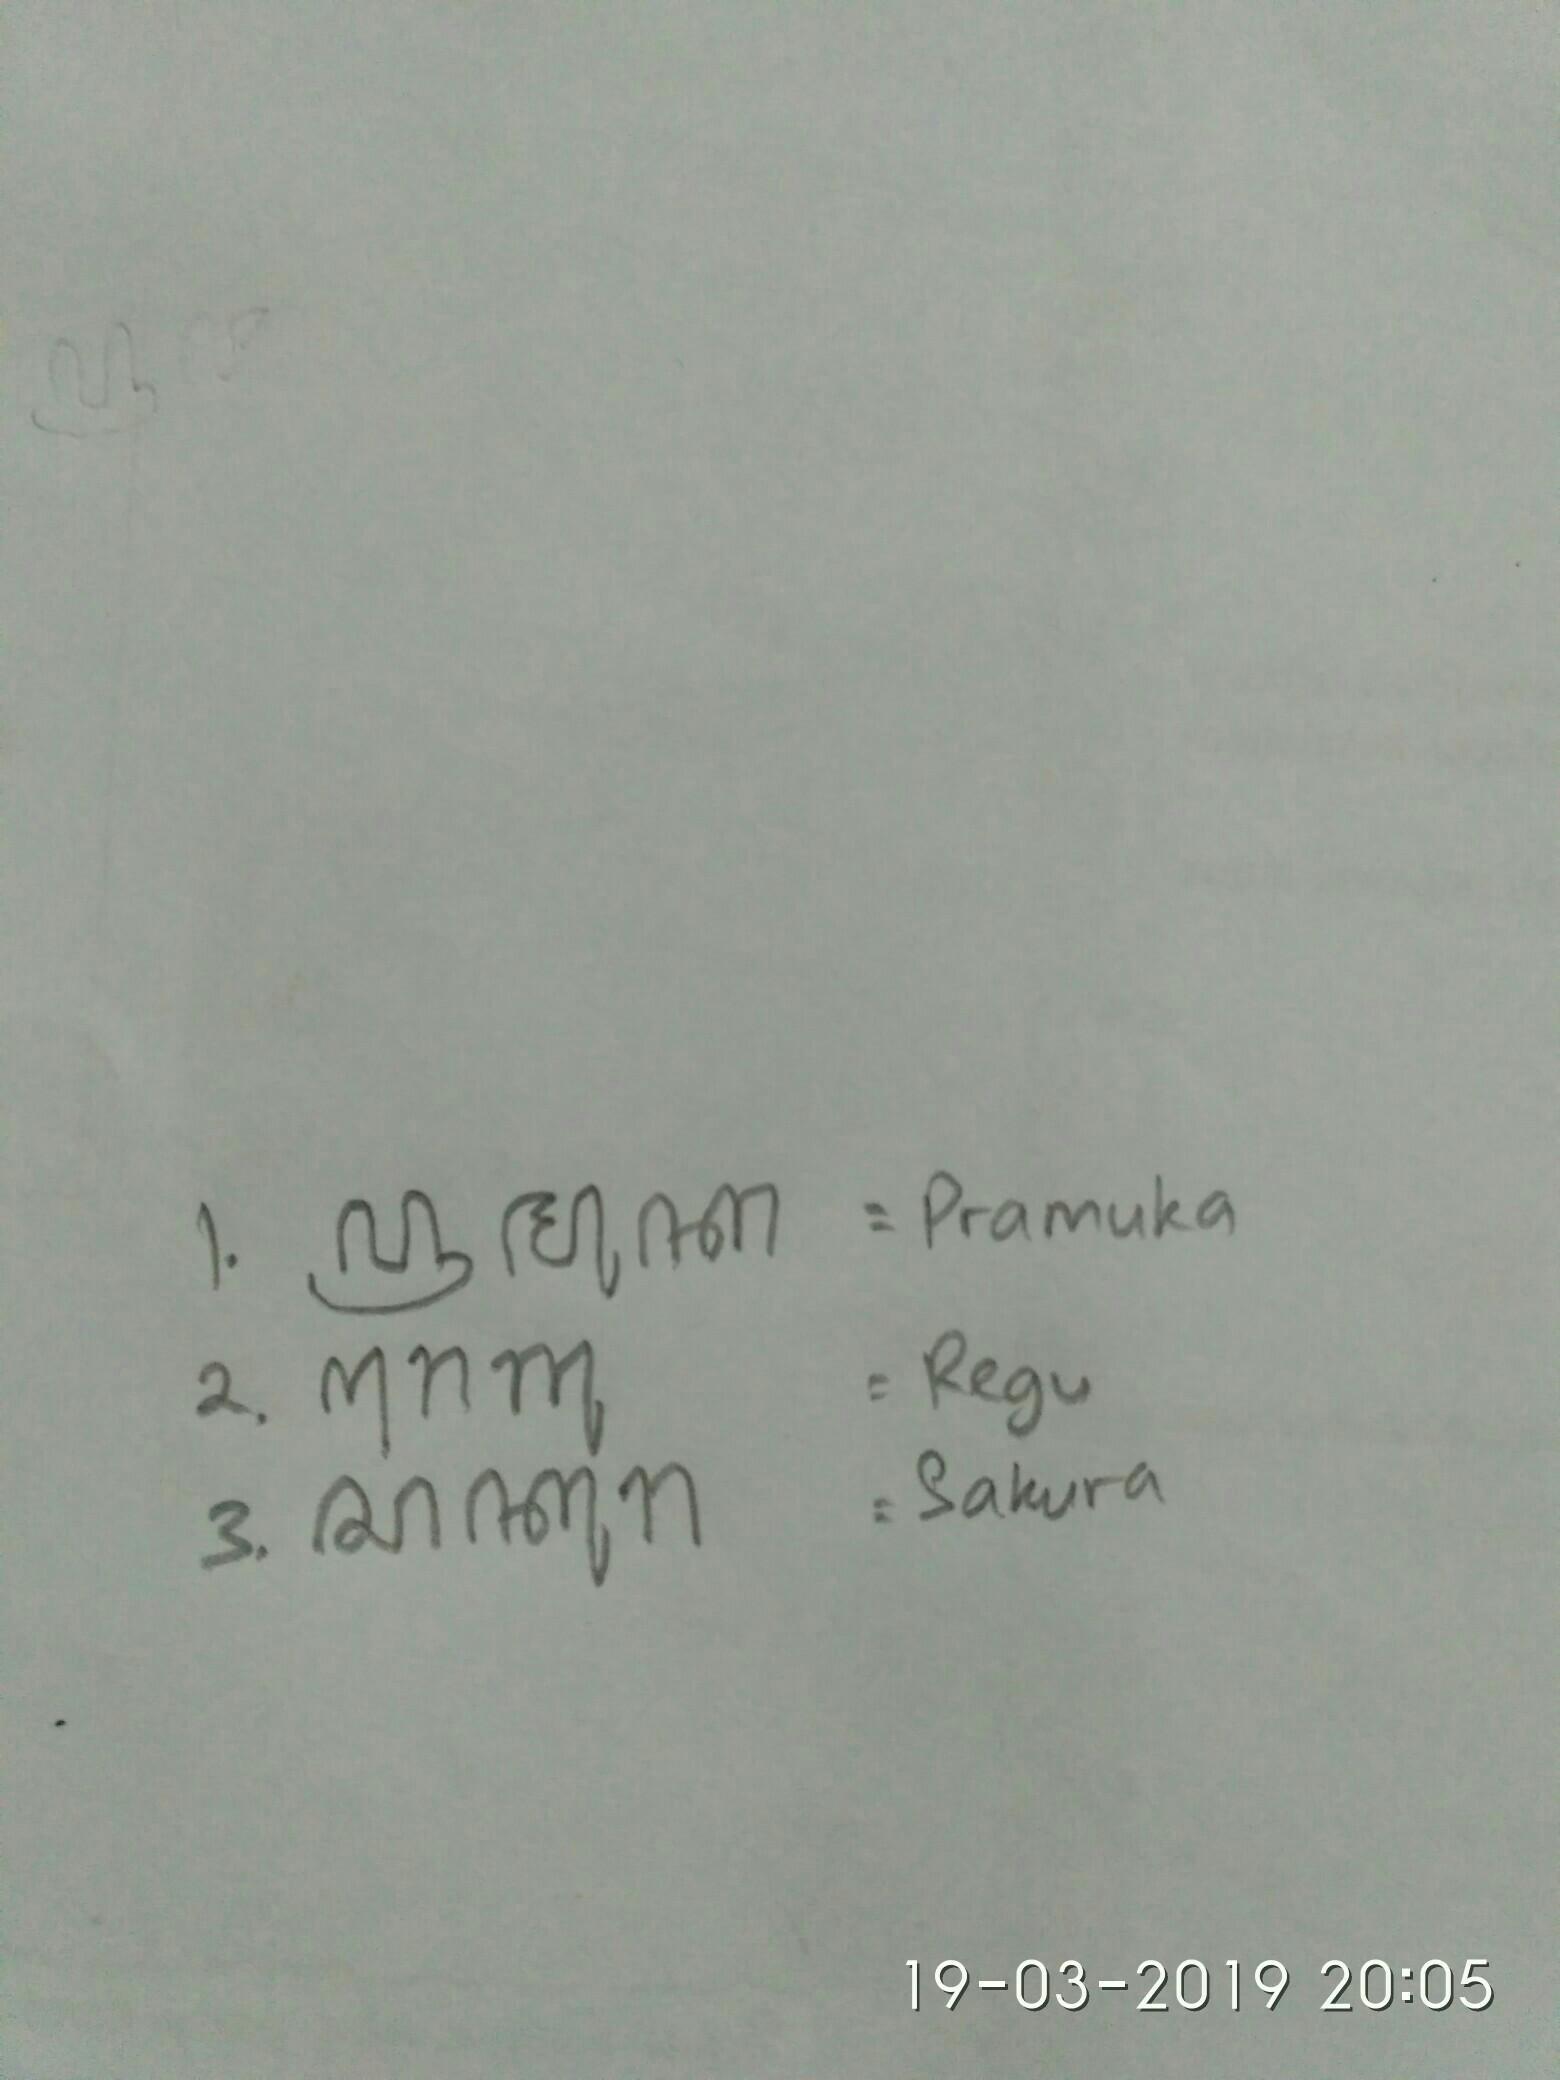 1. ꦥꦿꦩꦸꦏ = Pramuka
2. ꦫꦺꦒꦸ = Regu
3. ꦱꦏꦸꦫ = Sakura
19-03-2019 20:05